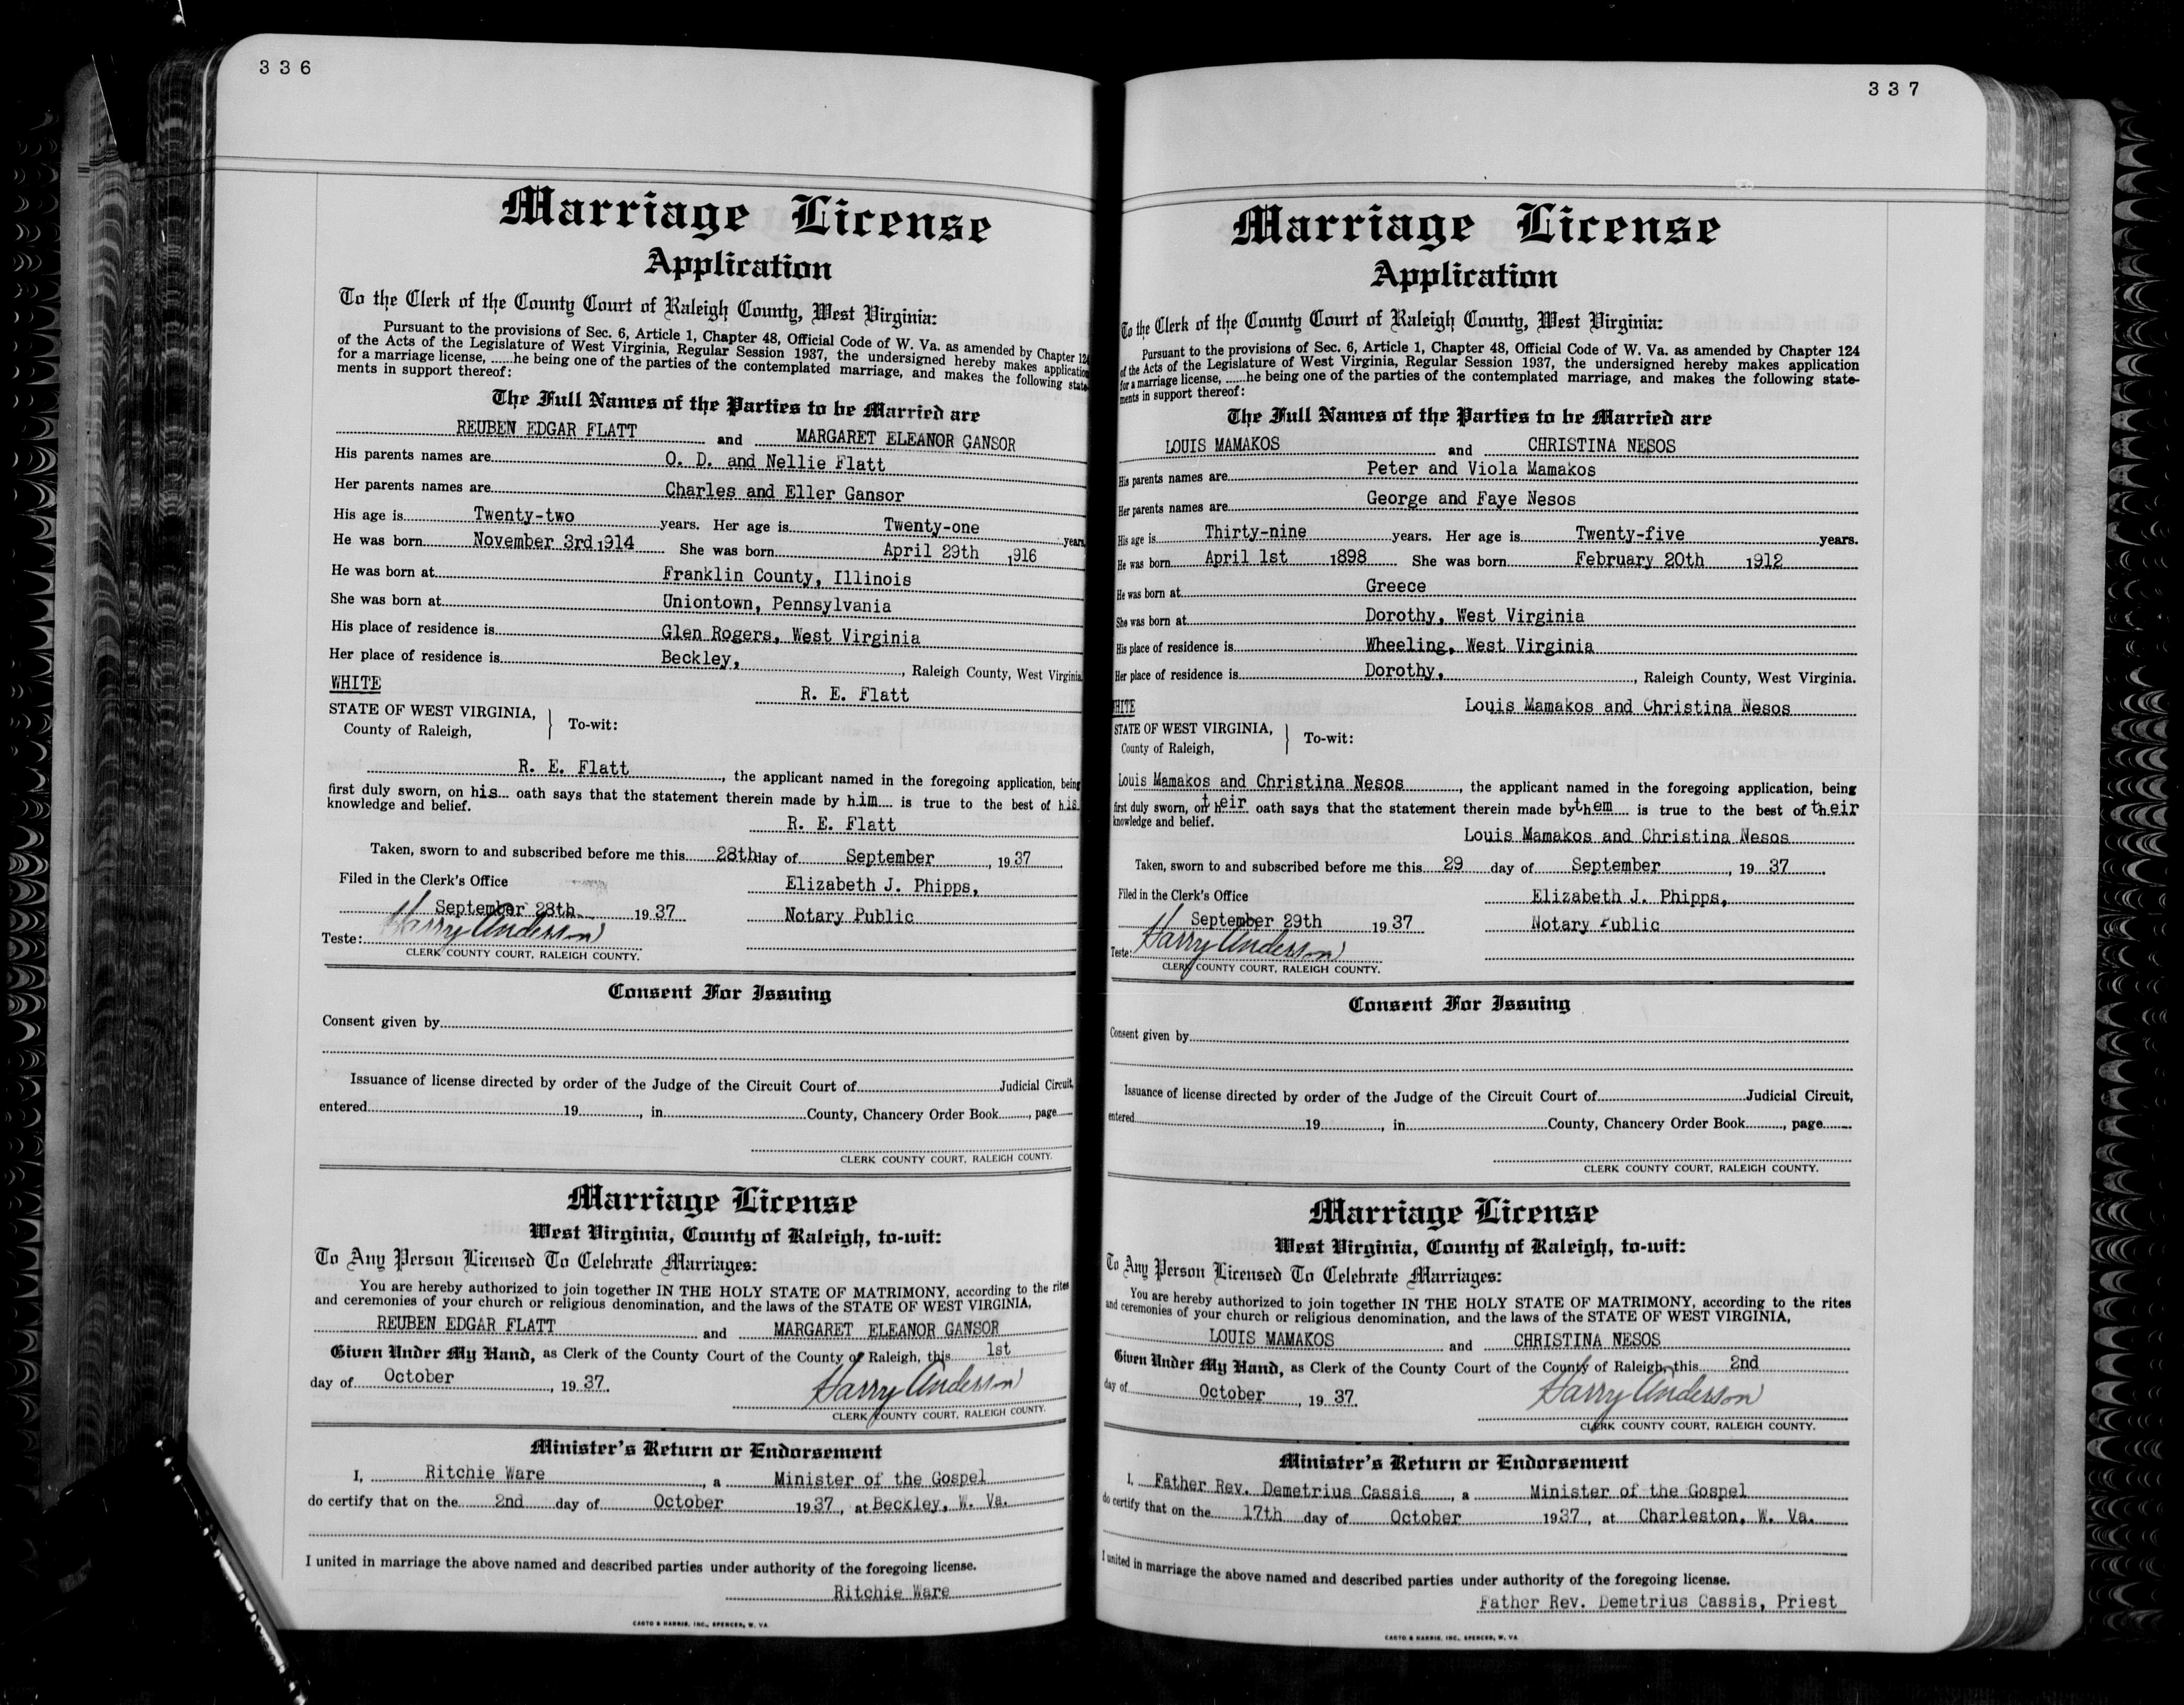 336
Marriage License
Application
To the Clerk of the County Court of Raleigh County, West Virginia:
Pursuant to the provisions of Sec. 6, Article 1, Chapter 48, Official Code of W. Va. as amended by Chapter 124
of the Acts of the Legislature of West Virginia, Regular Session 1937, the undersigned hereby makes application
for a marriage license, ......he being one of the parties of the contemplated marriage, and makes the following state-
ments in support thereof:
The Full Names of the Parties to be Married are
REUBEN EDGAR FLATT and MARGARET ELEANOR GANSOR
His parents names are O. D. and Nellie Flatt
Her parents names are Charles and Eller Gansor
His age is Twenty-two years. Her age is Twenty-one years
He was born November 3rd 1914 She was born April 29th 1916
He was born at Franklin County, Illinois
She was born at Uniontown, Pennsylvania
His place of residence is Glen Rogers, West Virginia
Her place of residence is Beckley, , Raleigh County, West Virginia
WHITE
R. E. Flatt
STATE OF WEST VIRGINIA,
County of Raleigh, To-wit:
R. E. Flatt, the applicant named in the foregoing application, being
first duly sworn, on his oath says that the statement therein made by him is true to the best of his
knowledge and belief.
R. E. Flatt
Taken, sworn to and subscribed before me this 28th day of September, 1937
Filed in the Clerk's Office Elizabeth J. Phipps,
September 28th 1937 Notary Public
Teste: Harry Anderson
CLERK COUNTY COURT, RALEIGH COUNTY.
Consent For Issuing
Consent given by
Issuance of license directed by order of the Judge of the Circuit Court of Judicial Circuit,
entered 19 , in County, Chancery Order Book , page
CLERK COUNTY COURT, RALEIGH COUNTY.
Marriage License
West Virginia, County of Raleigh, to-wit:
To Any Person Licensed To Celebrate Marriages:
You are hereby authorized to join together IN THE HOLY STATE OF MATRIMONY, according to the rites
and ceremonies of your church or religious denomination, and the laws of the STATE OF WEST VIRGINIA,
REUBEN EDGAR FLATT and MARGARET ELEANOR GANSOR
Given Under My Hand, as Clerk of the County Court of the County of Raleigh, this 1st
day of October, 1937.
Harry Anderson
CLERK COUNTY COURT, RALEIGH COUNTY.
Minister's Return or Endorsement
I, Ritchie Ware, a Minister of the Gospel
do certify that on the 2nd day of October 1937, at Beckley, W. Va.
I united in marriage the above named and described parties under authority of the foregoing license.
Ritchie Ware
CASTO & HARRIS, INC., SPENCER, W. VA
337
Marriage License
Application
To the Clerk of the County Court of Raleigh County, West Virginia:
Pursuant to the provisions of Sec. 6, Article 1, Chapter 48, Official Code of W. Va. as amended by Chapter 124
of the Acts of the Legislature of West Virginia, Regular Session 1937, the undersigned hereby makes application
for a marriage license, ......he being one of the parties of the contemplated marriage, and makes the following state-
ments in support thereof:
The Full Names of the Parties to be Married are
LOUIS MAMAKOS and CHRISTINA NESOS
His parents names are Peter and Viola Mamakos
Her parents names are George and Faye Nesos
His age is Thirty-nine years. Her age is Twenty-five years.
He was born April 1st 1898 She was born February 20th 1912
He was born at Greece
She was born at Dorothy, West Virginia
His place of residence is Wheeling, West Virginia
Her place of residence is Dorothy, , Raleigh County, West Virginia.
HITE
Louis Mamakos and Christina Nesos
STATE OF WEST VIRGINIA,
County of Raleigh, To-wit:
Louis Mamakos and Christina Nesos, the applicant named in the foregoing application, being
first duly sworn, on their oath says that the statement therein made by them is true to the best of their
knowledge and belief.
Louis Mamakos and Christina Nesos
Taken, sworn to and subscribed before me this 29 day of September, 1937
Filed in the Clerk's Office Elizabeth J. Phipps,
September 29th 1937 Notary Public
Teste: Harry Anderson
CLERK COUNTY COURT, RALEIGH COUNTY.
Consent For Issuing
Consent given by
Issuance of license directed by order of the Judge of the Circuit Court of Judicial Circuit,
entered 19 , in County, Chancery Order Book , page
CLERK COUNTY COURT, RALEIGH COUNTY.
Marriage License
West Virginia, County of Raleigh, to-wit:
To Any Person Licensed To Celebrate Marriages:
You are hereby authorized to join together IN THE HOLY STATE OF MATRIMONY, according to the rites
and ceremonies of your church or religious denomination, and the laws of the STATE OF WEST VIRGINIA,
LOUIS MAMAKOS and CHRISTINA NESOS
Given Under My Hand, as Clerk of the County Court of the County of Raleigh, this 2nd
day of October, 1937.
Harry Anderson
CLERK COUNTY COURT, RALEIGH COUNTY.
Minister's Return or Endorsement
I, Father Rev. Demetrius Cassis, a Minister of the Gospel
do certify that on the 17th day of October 1937, at Charleston, W. Va.
I united in marriage the above named and described parties under authority of the foregoing license.
Father Rev. Demetrius Cassis, Priest
CASTO & HARRIS, INC., SPENCER, W. VA